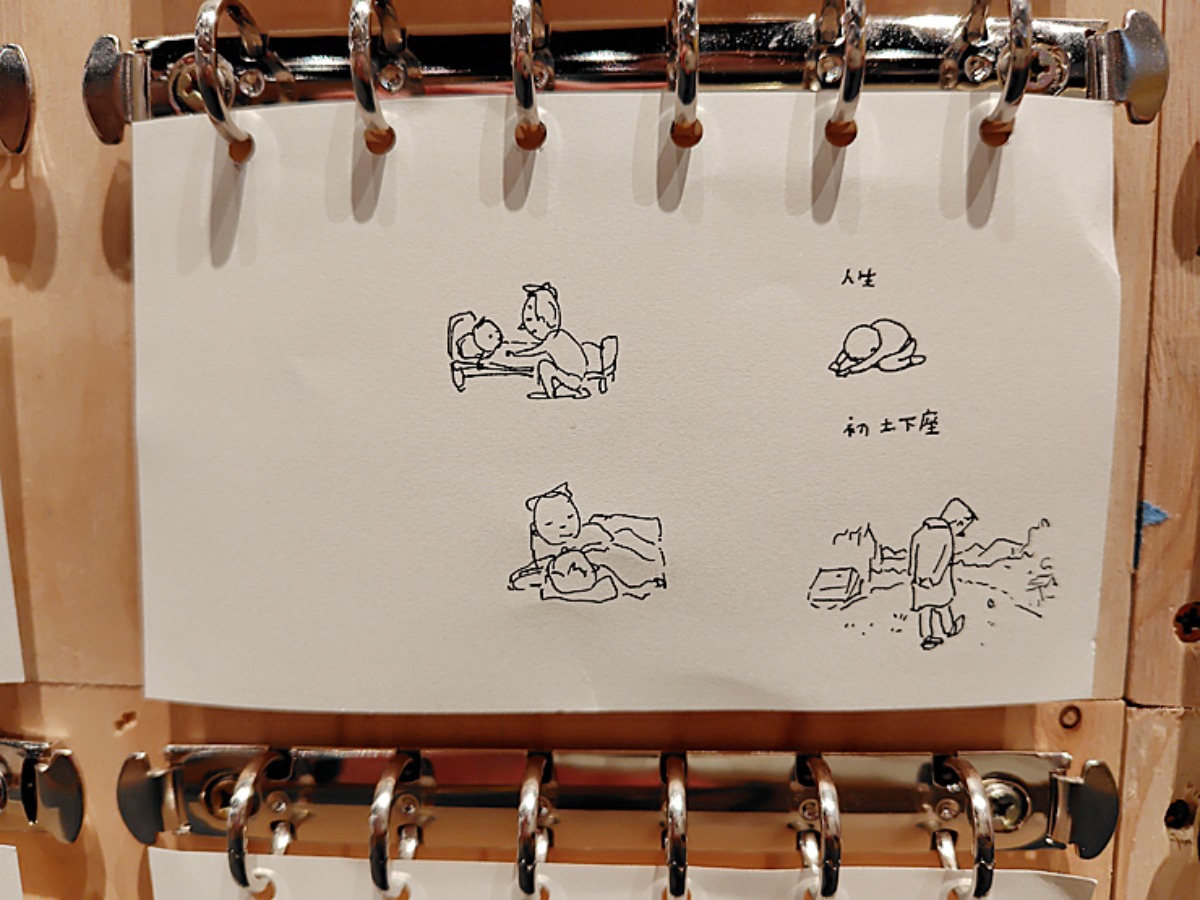 人生
初土下座